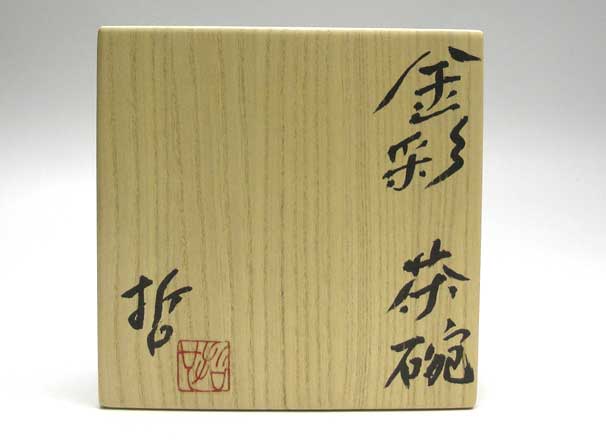 金彩 茶碗
哲